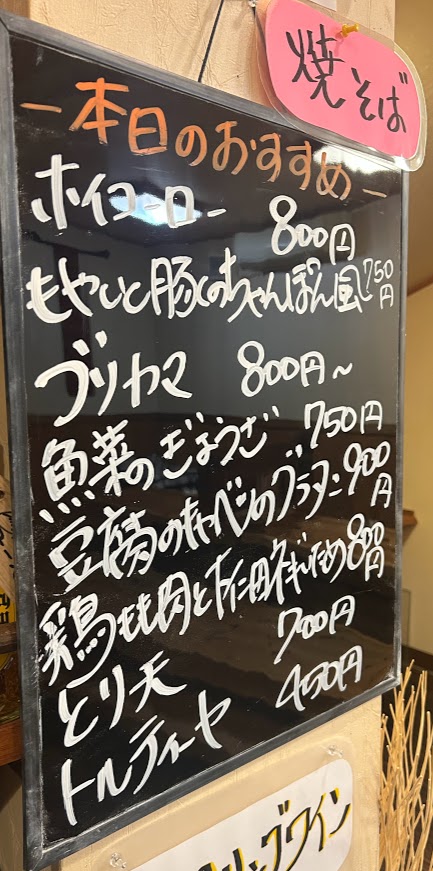 焼そば
ー本日のおすすめー
ホイコーロー 800円
もやしと豚のちゃんぽん風 750円
ブリカマ 800円〜
魚菜のぎょうざ 750円
豆腐のキャベツのグラタン 900円
鶏もも肉と下仁田ネギいため 800円
とり天 700円
トルティーヤ 450円
ブワイン